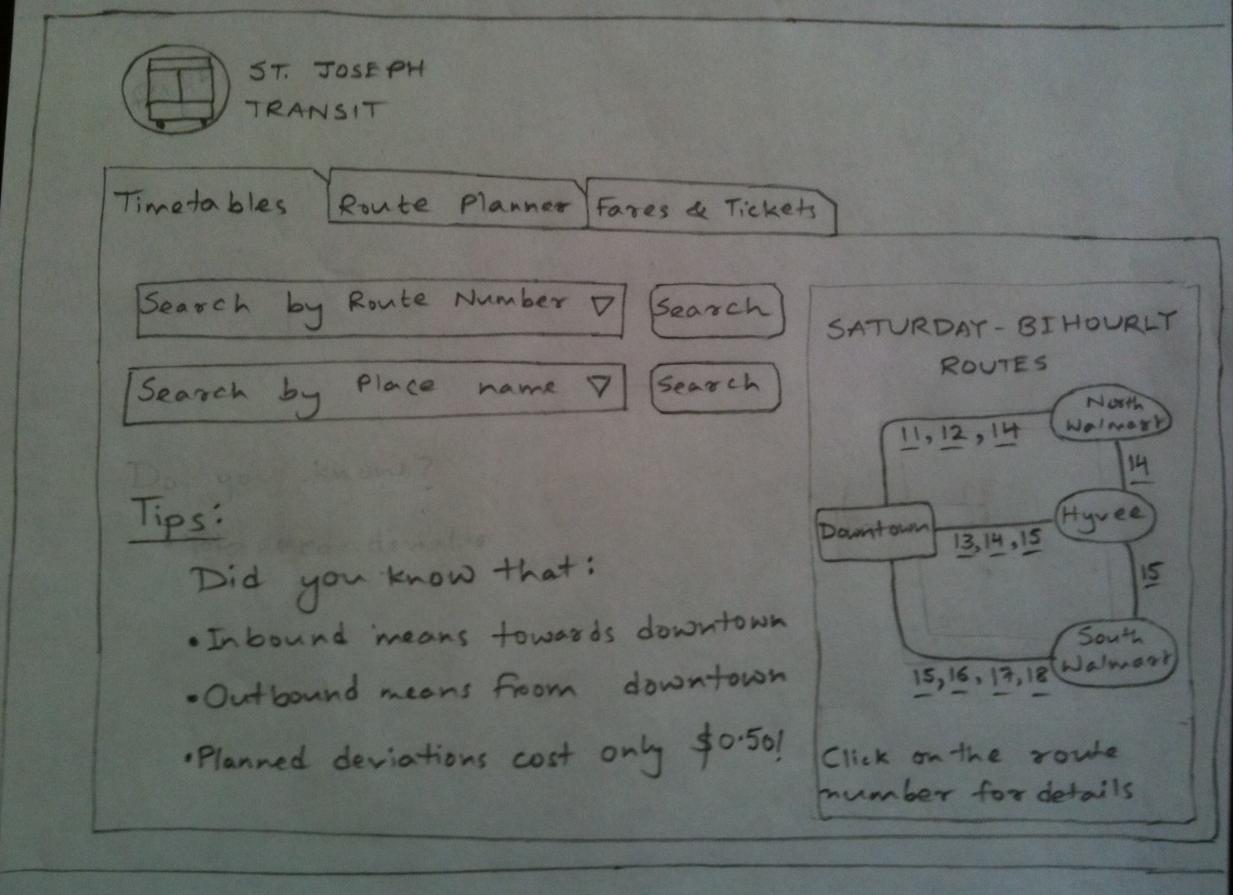 ST. JOSEPH
TRANSIT
Timetables
Route Planner
Fares & Tickets
Search by Route Number
Search
Search by Place name
Search
Do you know?
Tips:
Did you know that:
• Inbound means towards downtown
• Outbound means from downtown
• Planned deviations cost only $0.50!
SATURDAY - BIHOURLY
ROUTES
North
Walmart
11, 12, 14
14
Downtown
Hyvee
13, 14, 15
15
South
Walmart
15, 16, 17, 18
Click on the route
number for details